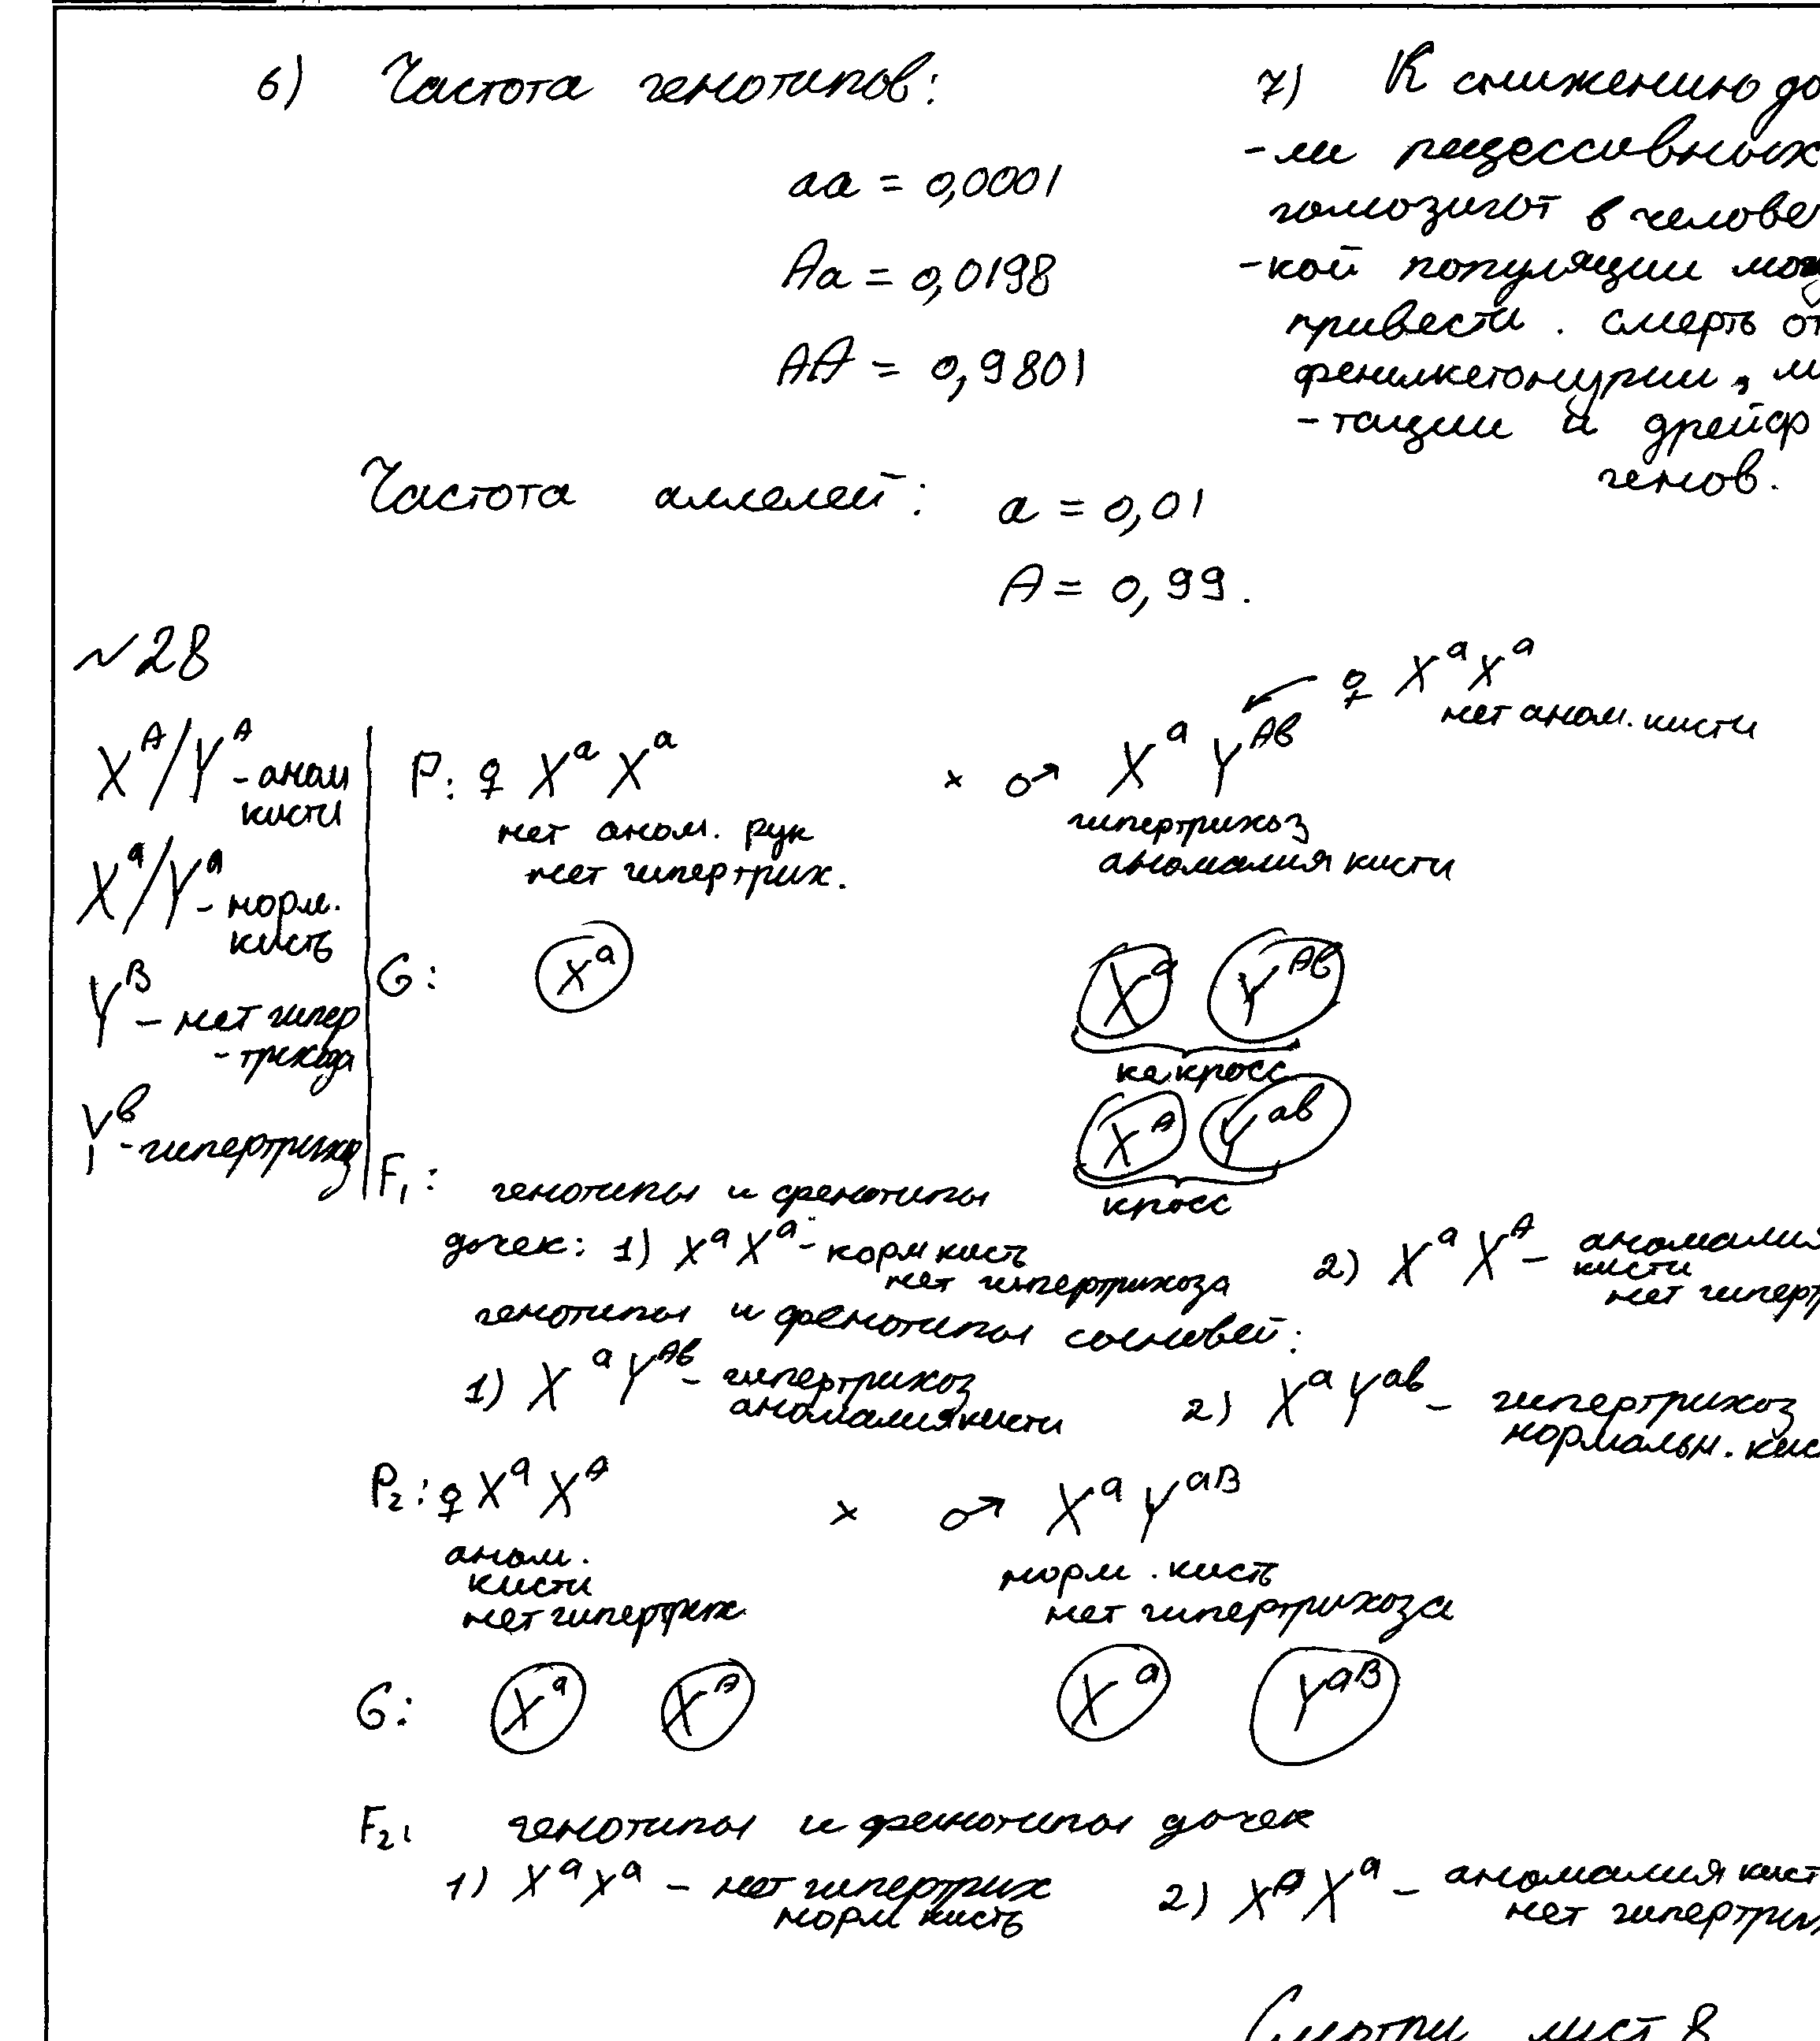 6) Частота генотипов:
aa = 0,0001
Aa = 0,0198
AA = 0,9801
Частота аллелей: a = 0,01
A = 0,99.
7) К снижению до
-ли рецессивных
гомозигот в челове
-кой популяции мо
привести . смерть от
фенилкетонурии, м
-тации и дрейф
генов.
~28
X^A/Y^A - аном
кисти
X^a/Y^a - норм.
кисть
Y^B - нет гипер
- трихоза
Y^b - гипертрихоз
♀ X^a X^a
нет аном. кисти
P: ♀ X^a X^a × ♂ X^a Y^Ab
нет аном. рук
нет гипертрих.
гипертрихоз
аномалия кисти
G: X^a X^a Y^Ab
некросс
X^A Y^ab
кросс
F1: генотипы и фенотипы
дочек: 1) X^a X^a - норм кисть
нет гипертрихоза
2) X^a X^A - аномалия
кисти
нет гиперт
генотипы и фенотипы сыновей:
1) X^a Y^Ab - гипертрихоз
аномалия кисти
2) X^a Y^ab - гипертрихоз
нормальн. кис
P2: ♀ X^a X^A × ♂ X^a Y^aB
аном.
кисти
нет гипертрих
норм. кисть
нет гипертрихоза
G: X^a X^A X^a Y^aB
F2: генотипы и фенотипы дочек
1) X^a X^a - нет гипертрих
норм кисть
2) X^A X^a - аномалия кист
нет гипертрих
Смотри лист 8